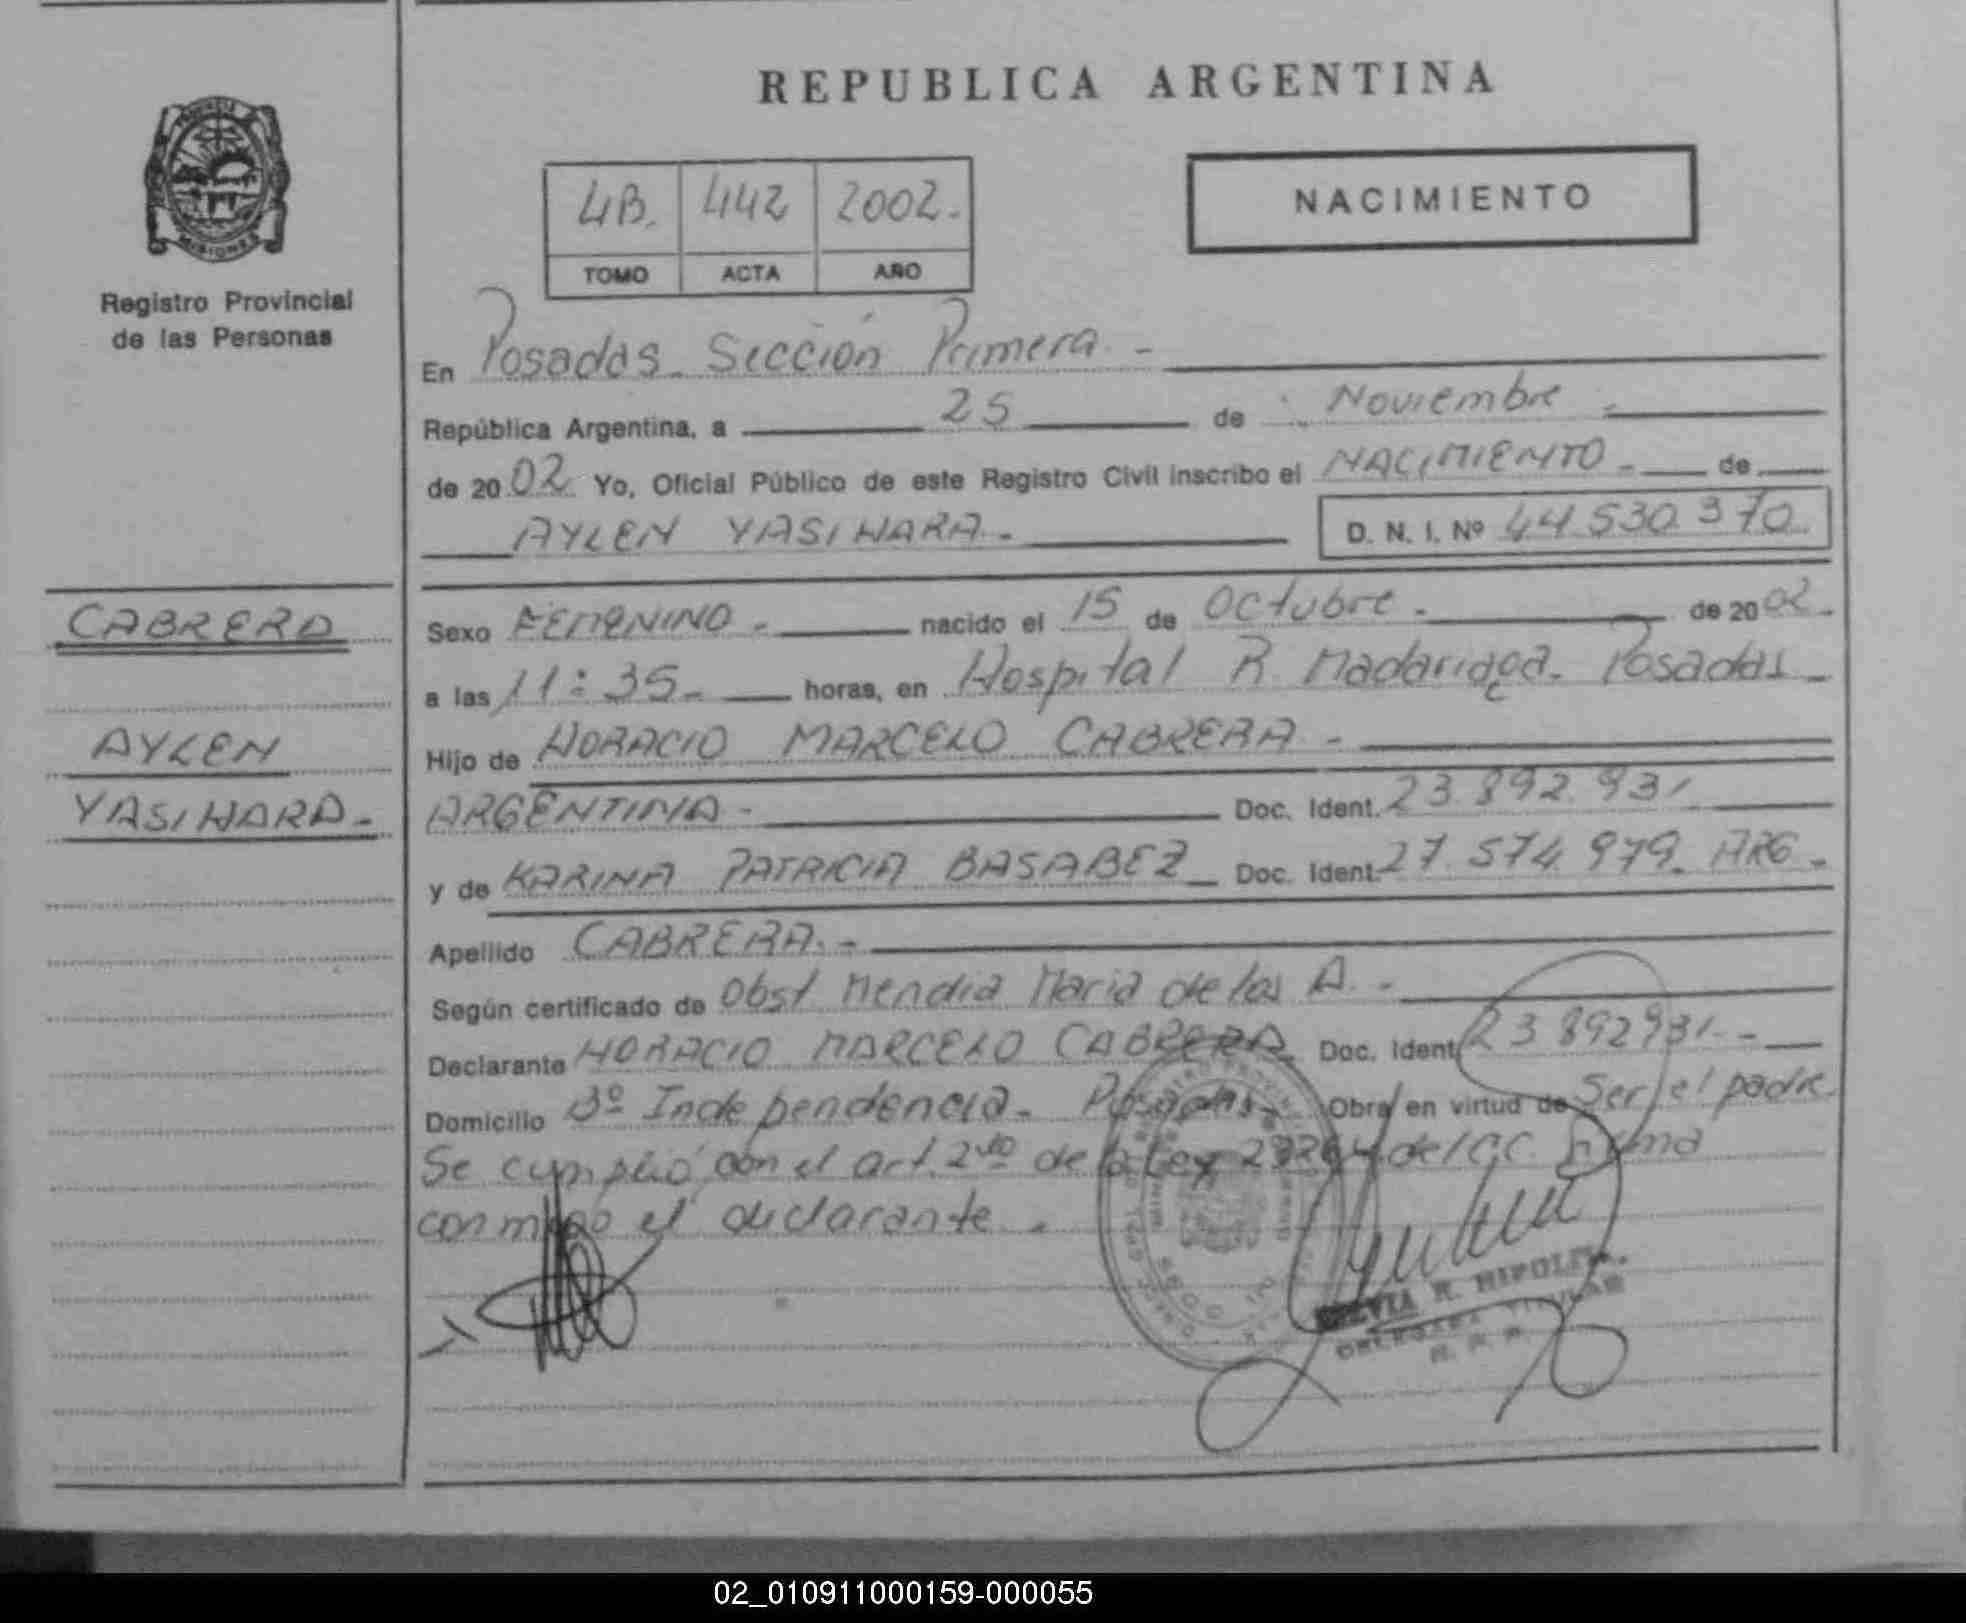 REPUBLICA ARGENTINA
PROVINCIA DE
MISIONES
Registro Provincial
de las Personas
4B. 442 2002.-
TOMO ACTA AÑO
NACIMIENTO
En Posadas. Sección Primera.-
República Argentina, a 25 de Noviembre.-
de 2002. Yo, Oficial Público de este Registro Civil inscribo el NACIMIENTO.- de
AYLEN YASIHARA.-
D. N. I. Nº 44.530.370.
CABRERA
AYLEN
YASIHARA.-
Sexo FEMENINO.- nacido el 15 de Octubre.- de 2002.-
a las 11:35.- horas, en Hospital R. Madariaga. Posadas.-
Hijo de HORACIO MARCELO CABRERA.-
ARGENTINA.- Doc. Ident. 23.892.931
y de KARINA PATRICIA BASABEZ Doc. Ident. 27.574.979. ARG.-
Apellido CABRERA.-
Según certificado de Obst Mendia Maria de los A.-
Declarante HORACIO MARCELO CABRERA Doc. Ident 23892931.-
Domicilio Bº Independencia. Posadas. Obra en virtud de Ser el padre.
Se cumplió con el art. 2do de la Ley 23264 del C.C. Firma
conmigo el declarante.
R. HIPOLITO
DELEGADA TITULAR
R. P. P.
02_010911000159-000055